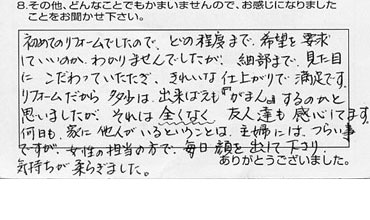 8.その他、どんなことでもかまいませんので、お感じになりました
ことをお聞かせ下さい。
初めてのリフォームでしたので、どの程度まで、希望を要求
していいのか、わかりませんでしたが、細部まで、見た目
に こだわっていただき、きれいな仕上がりで 満足です。
リフォームだから 多少は、出来ばえも『がまん』するのかと
思いましたが、それは 全くなく 友人達も 感心してます。
何日も、家に 他人が いるということは、主婦には、つらい事
ですが、女性の担当の方で、毎日 顔を 出して下さり、
気持ちが 柔らぎました。
ありがとうございました。